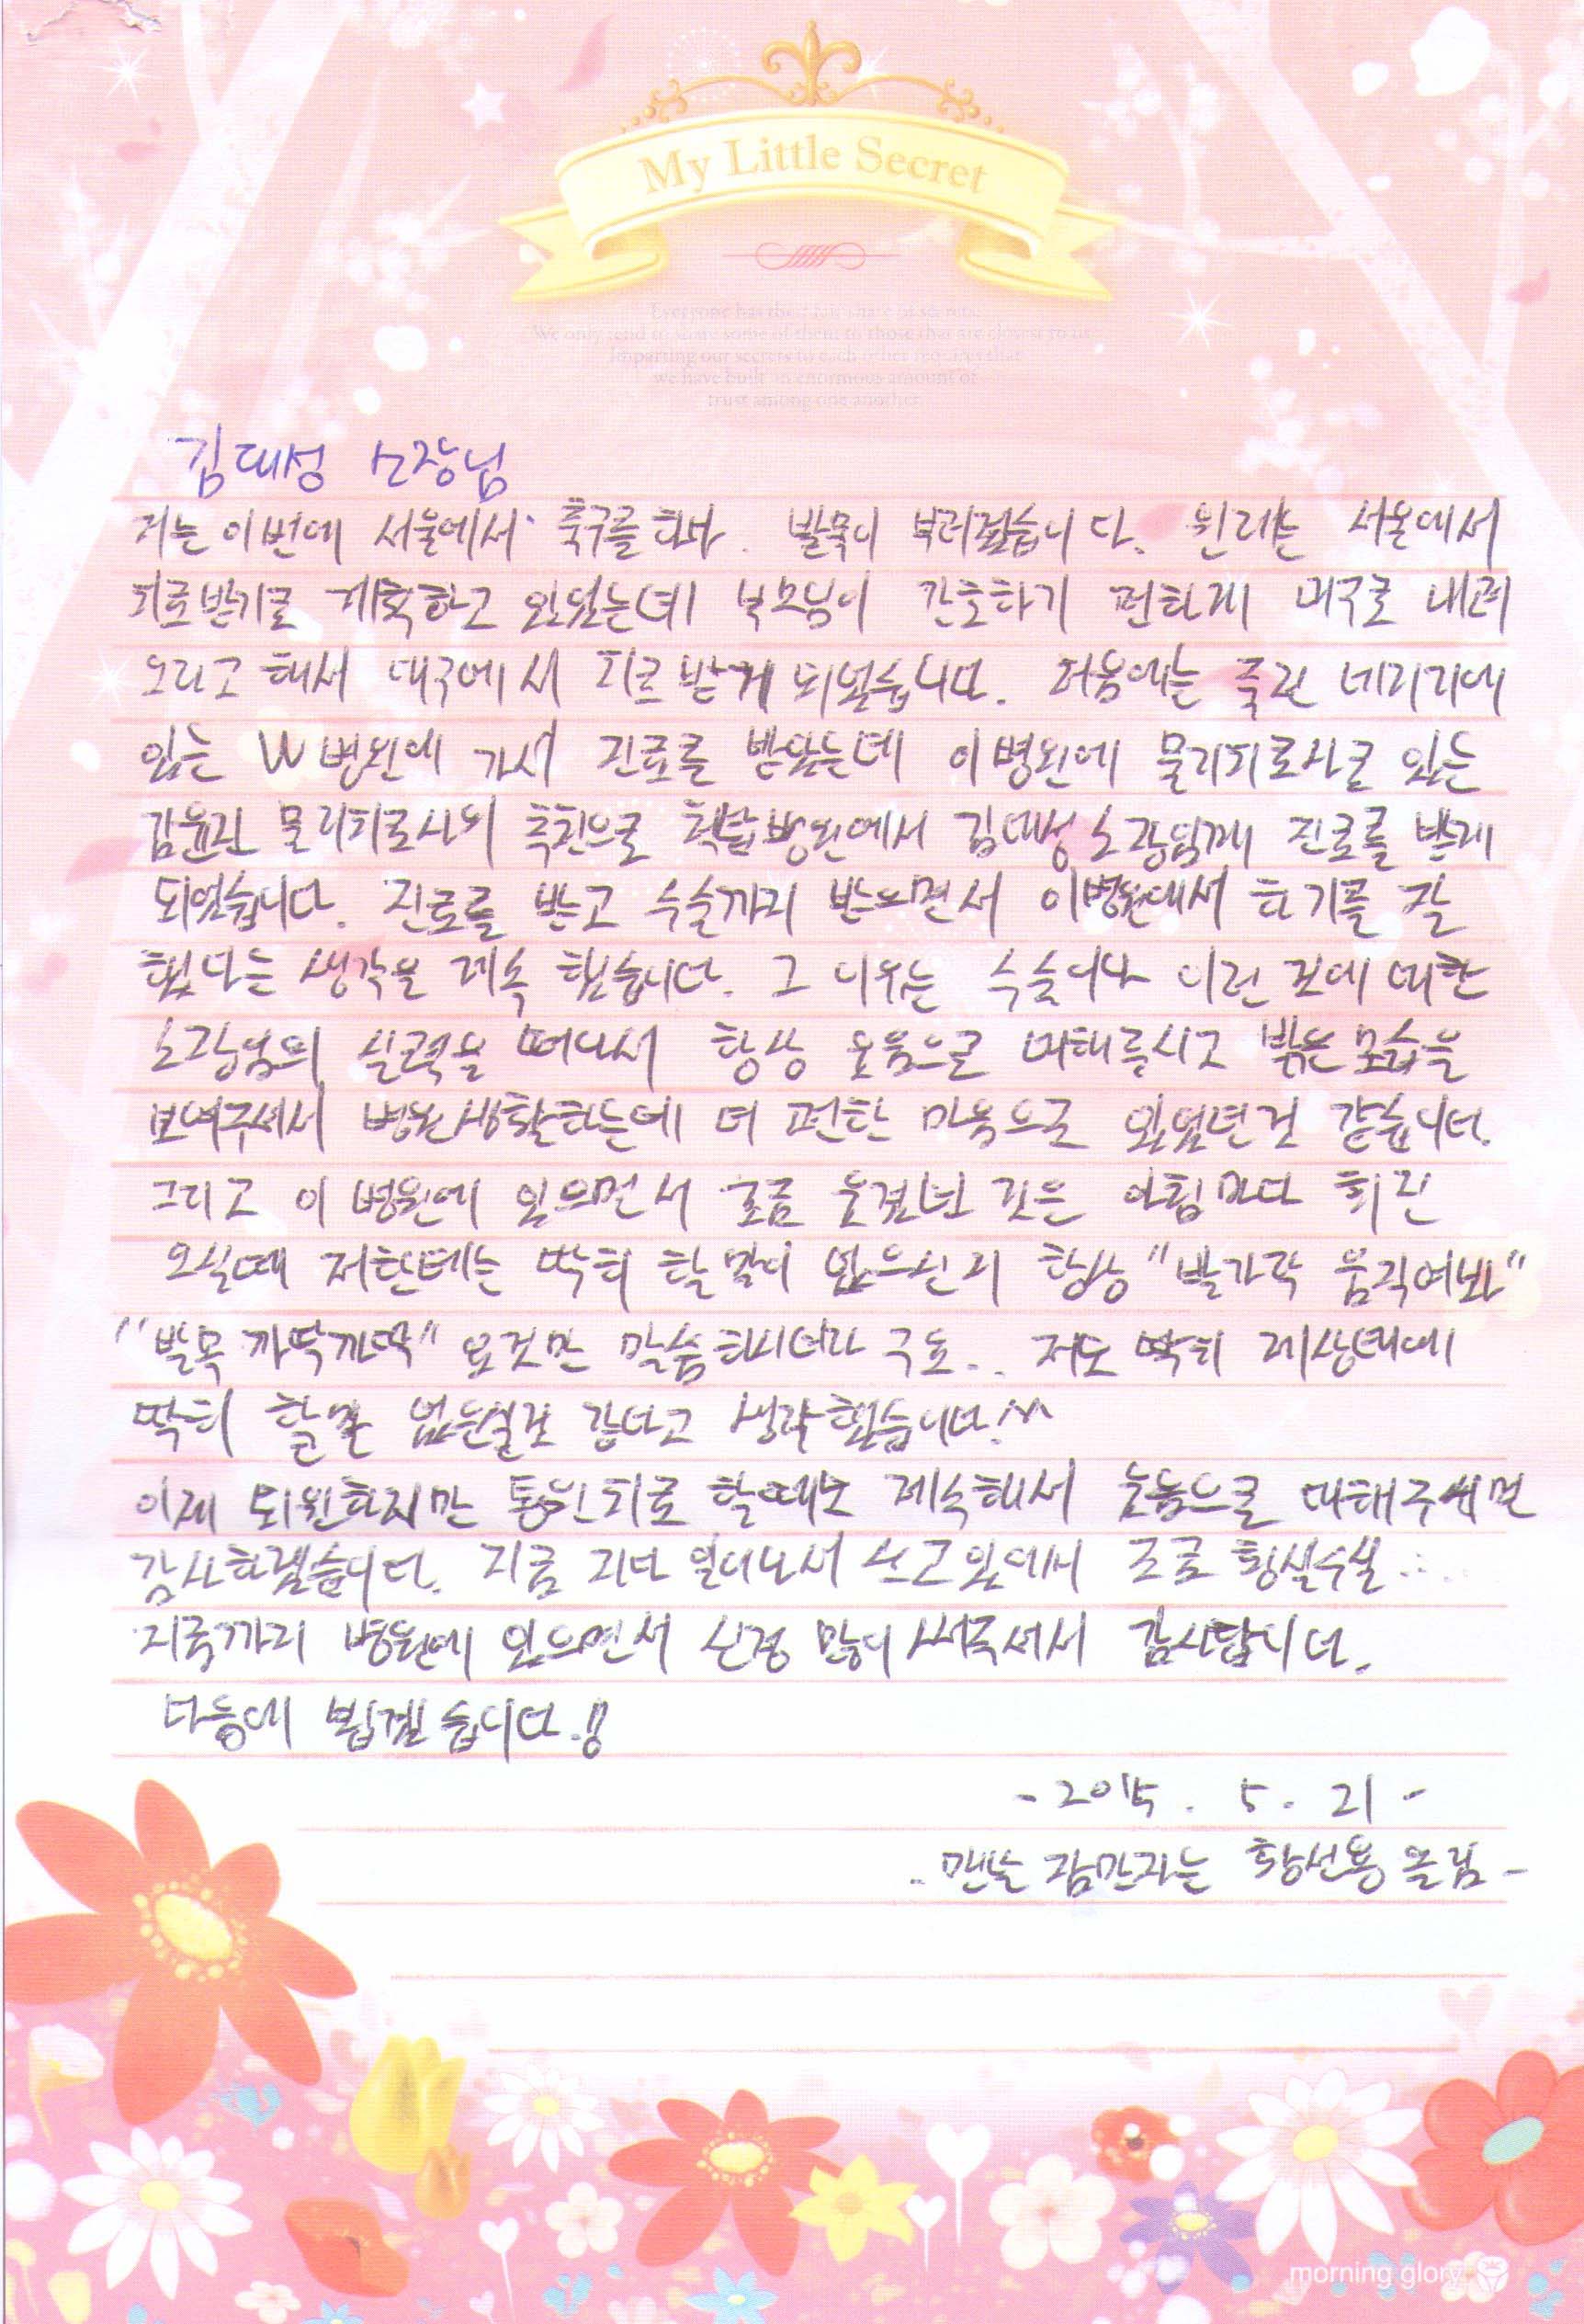 My Little Secret
Everyone has their fair share of secrets.
We only tend to share some of them to those that are closest to us.
Imparting our secrets to each other requires that
we have built an enormous amount of
trust among one another.
김대성 소장님
저는 이번에 서울에서 축구를 하다. 발목이 부러졌습니다. 원래는 서울에서
치료받기로 계획하고 있었는데 부모님이 간호하기 편하게 대구로 내려
오라고 해서 대구에서 치료받게 되었습니다. 처음에는 죽전 네거리에
있는 W병원에 가서 진료를 받았는데 이병원에 물리치료사로 있는
김윤진 물리치료사의 추천으로 병원에서 김대성 소장님께 진료를 받게
되었습니다. 진료를 받고 수술까지 받으면서 이병원에서 하기를 잘
했다는 생각을 계속 했습니다. 그 이유는 수술이나 이런 것에 대한
소장님의 실력을 떠나서 항상 웃음으로 대해주시고 밝은모습을
보여주셔서 병원생활하는데 더 편한 마음으로 있었던건 같습니다.
그리고 이 병원에 있으면서 조금 웃겼던 것은 아침마다 회진
오실때 저한테는 딱히 할말이 없으신지 항상 "발가락 움직여봐"
"발목 까딱까딱" 요것만 말씀하시더라 구요.. 저도 딱히 제상태에
딱히 할말 없으실것 같다고 생각했습니다!^^
이제 퇴원하지만 통원치료 할때도 계속해서 웃음으로 대해주시면
감사하겠습니다. 지금 자다 일어나서 쓰고있어서 조금 횡설수설....
지금까지 병원에 있으면서 신경 많이 써주셔서 감사합니다.
다음에 뵙겠습니다.!!
-2015. 5. 21-
-맨날 잠만자는 황선용 올림-
morning glory